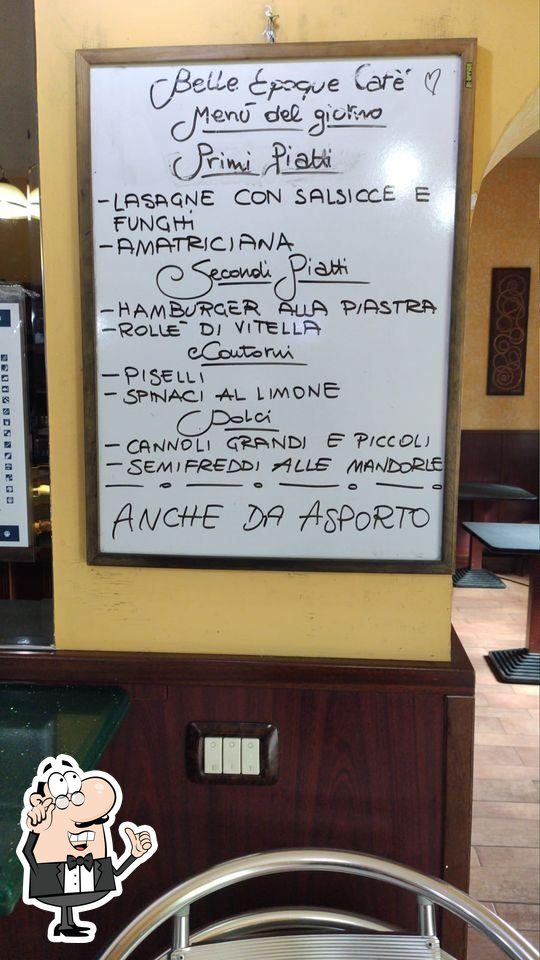 Belle Epoque Cafè
Menù del giorno
Primi Piatti
- LASAGNE CON SALSICCE E
FUNGHI
- AMATRICIANA
Secondi Piatti
- HAMBURGER ALLA PIASTRA
- ROLLÈ DI VITELLA
Contorni
- PISELLI
- SPINACI AL LIMONE
Dolci
- CANNOLI GRANDI E PICCOLI
- SEMIFREDDI ALLE MANDORLE
ANCHE DA ASPORTO